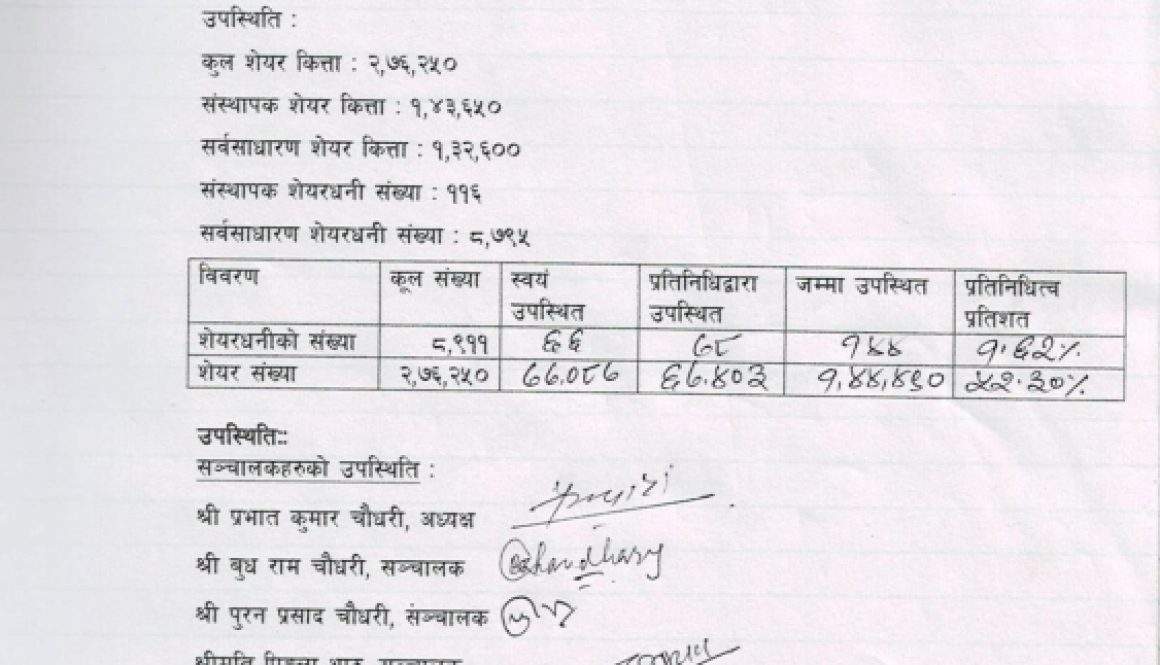 उपस्थिति :
कुल शेयर कित्ता : २,७६,२५०
संस्थापक शेयर कित्ता : १,४३,६५०
सर्वसाधारण शेयर कित्ता : १,३२,६००
संस्थापक शेयरधनी संख्या : ११६
सर्वसाधारण शेयरधनी संख्या : ८,७९५
विवरण कूल संख्या स्वयं उपस्थित प्रतिनिधिद्वारा उपस्थित जम्मा उपस्थित प्रतिनिधित्व प्रतिशत
शेयरधनीको संख्या ८,९११ ६६ ७८ १४४ १.६२%
शेयर संख्या २,७६,२५० ७७,०८७ ६७,४०३ १,४४,४९० ५२.३०%
उपस्थितिः:
सञ्चालकहरुको उपस्थिति :
श्री प्रभात कुमार चौधरी, अध्यक्ष
श्री बुध राम चौधरी, सञ्चालक
श्री पुरन प्रसाद चौधरी, संञ्चालक
श्रीमति